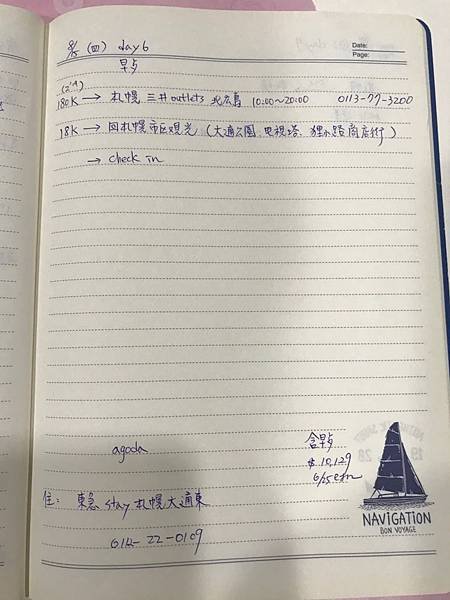 (四) day 6
早点
Date:
Page:
180K → 札幌 三井outlets 北広島 10:00~20:00 0113-77-3200
18K → 回札幌市区观光 (大通公園、電視塔、狸小路商店街)
→ check in
agoda
含早点
$10,129
住: 東急 stay 札幌大通東
011-22-0109
NAVIGATION
BON VOYAGE